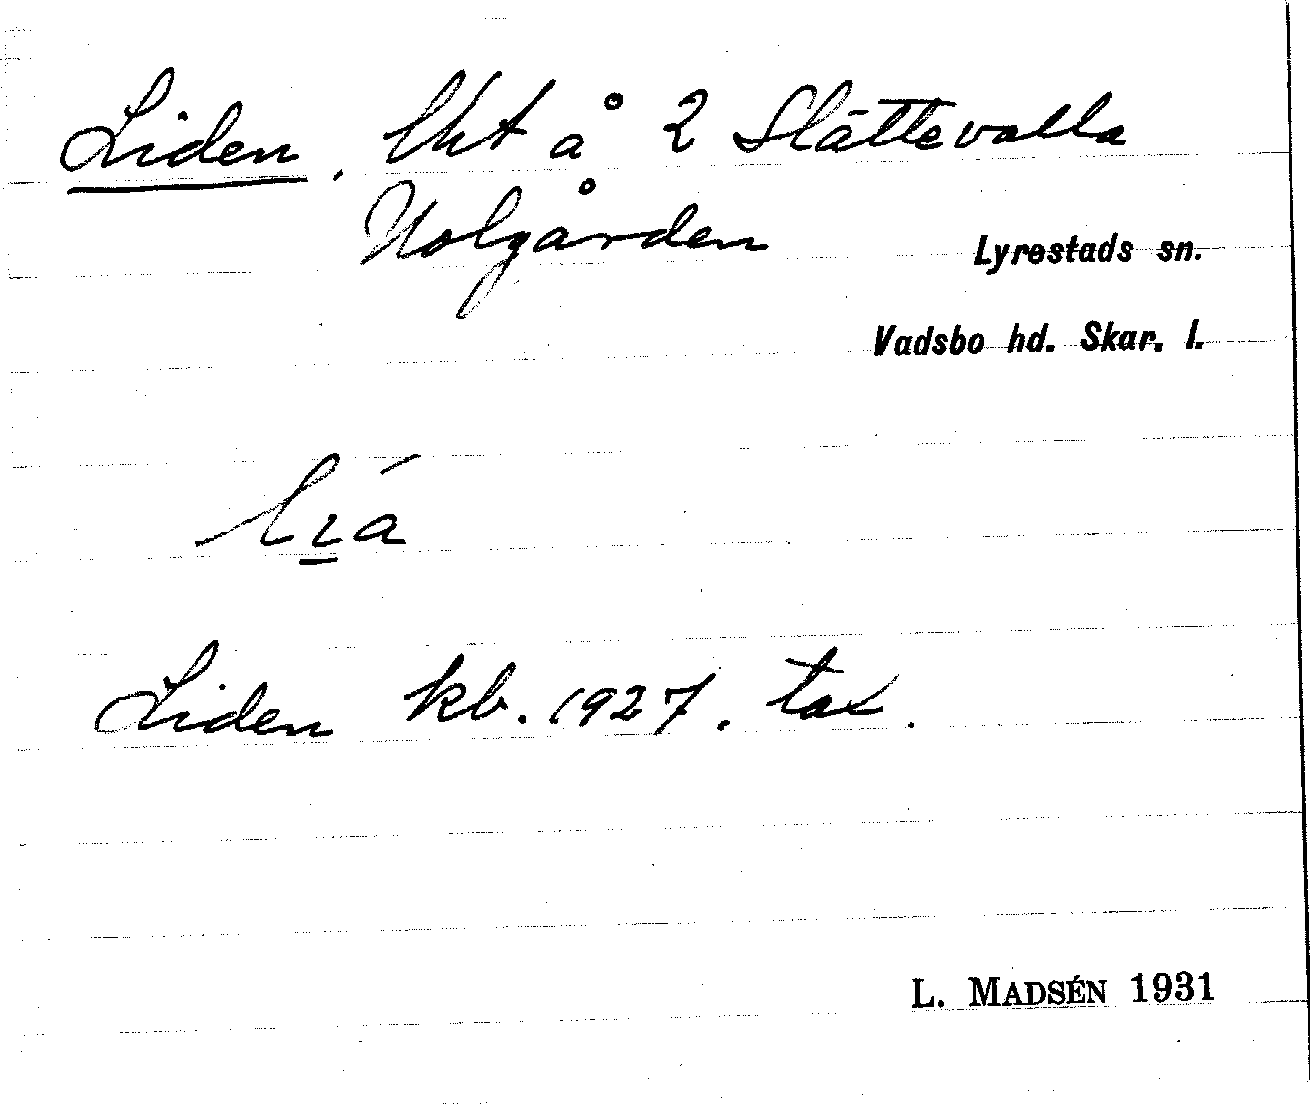 Liden, lht å 2 Slättevalla
Nolgården
Lyrestads sn.
Vadsbo hd. Skar. l.
Liden kb. 1927. tax.
L. MADSÉN 1931